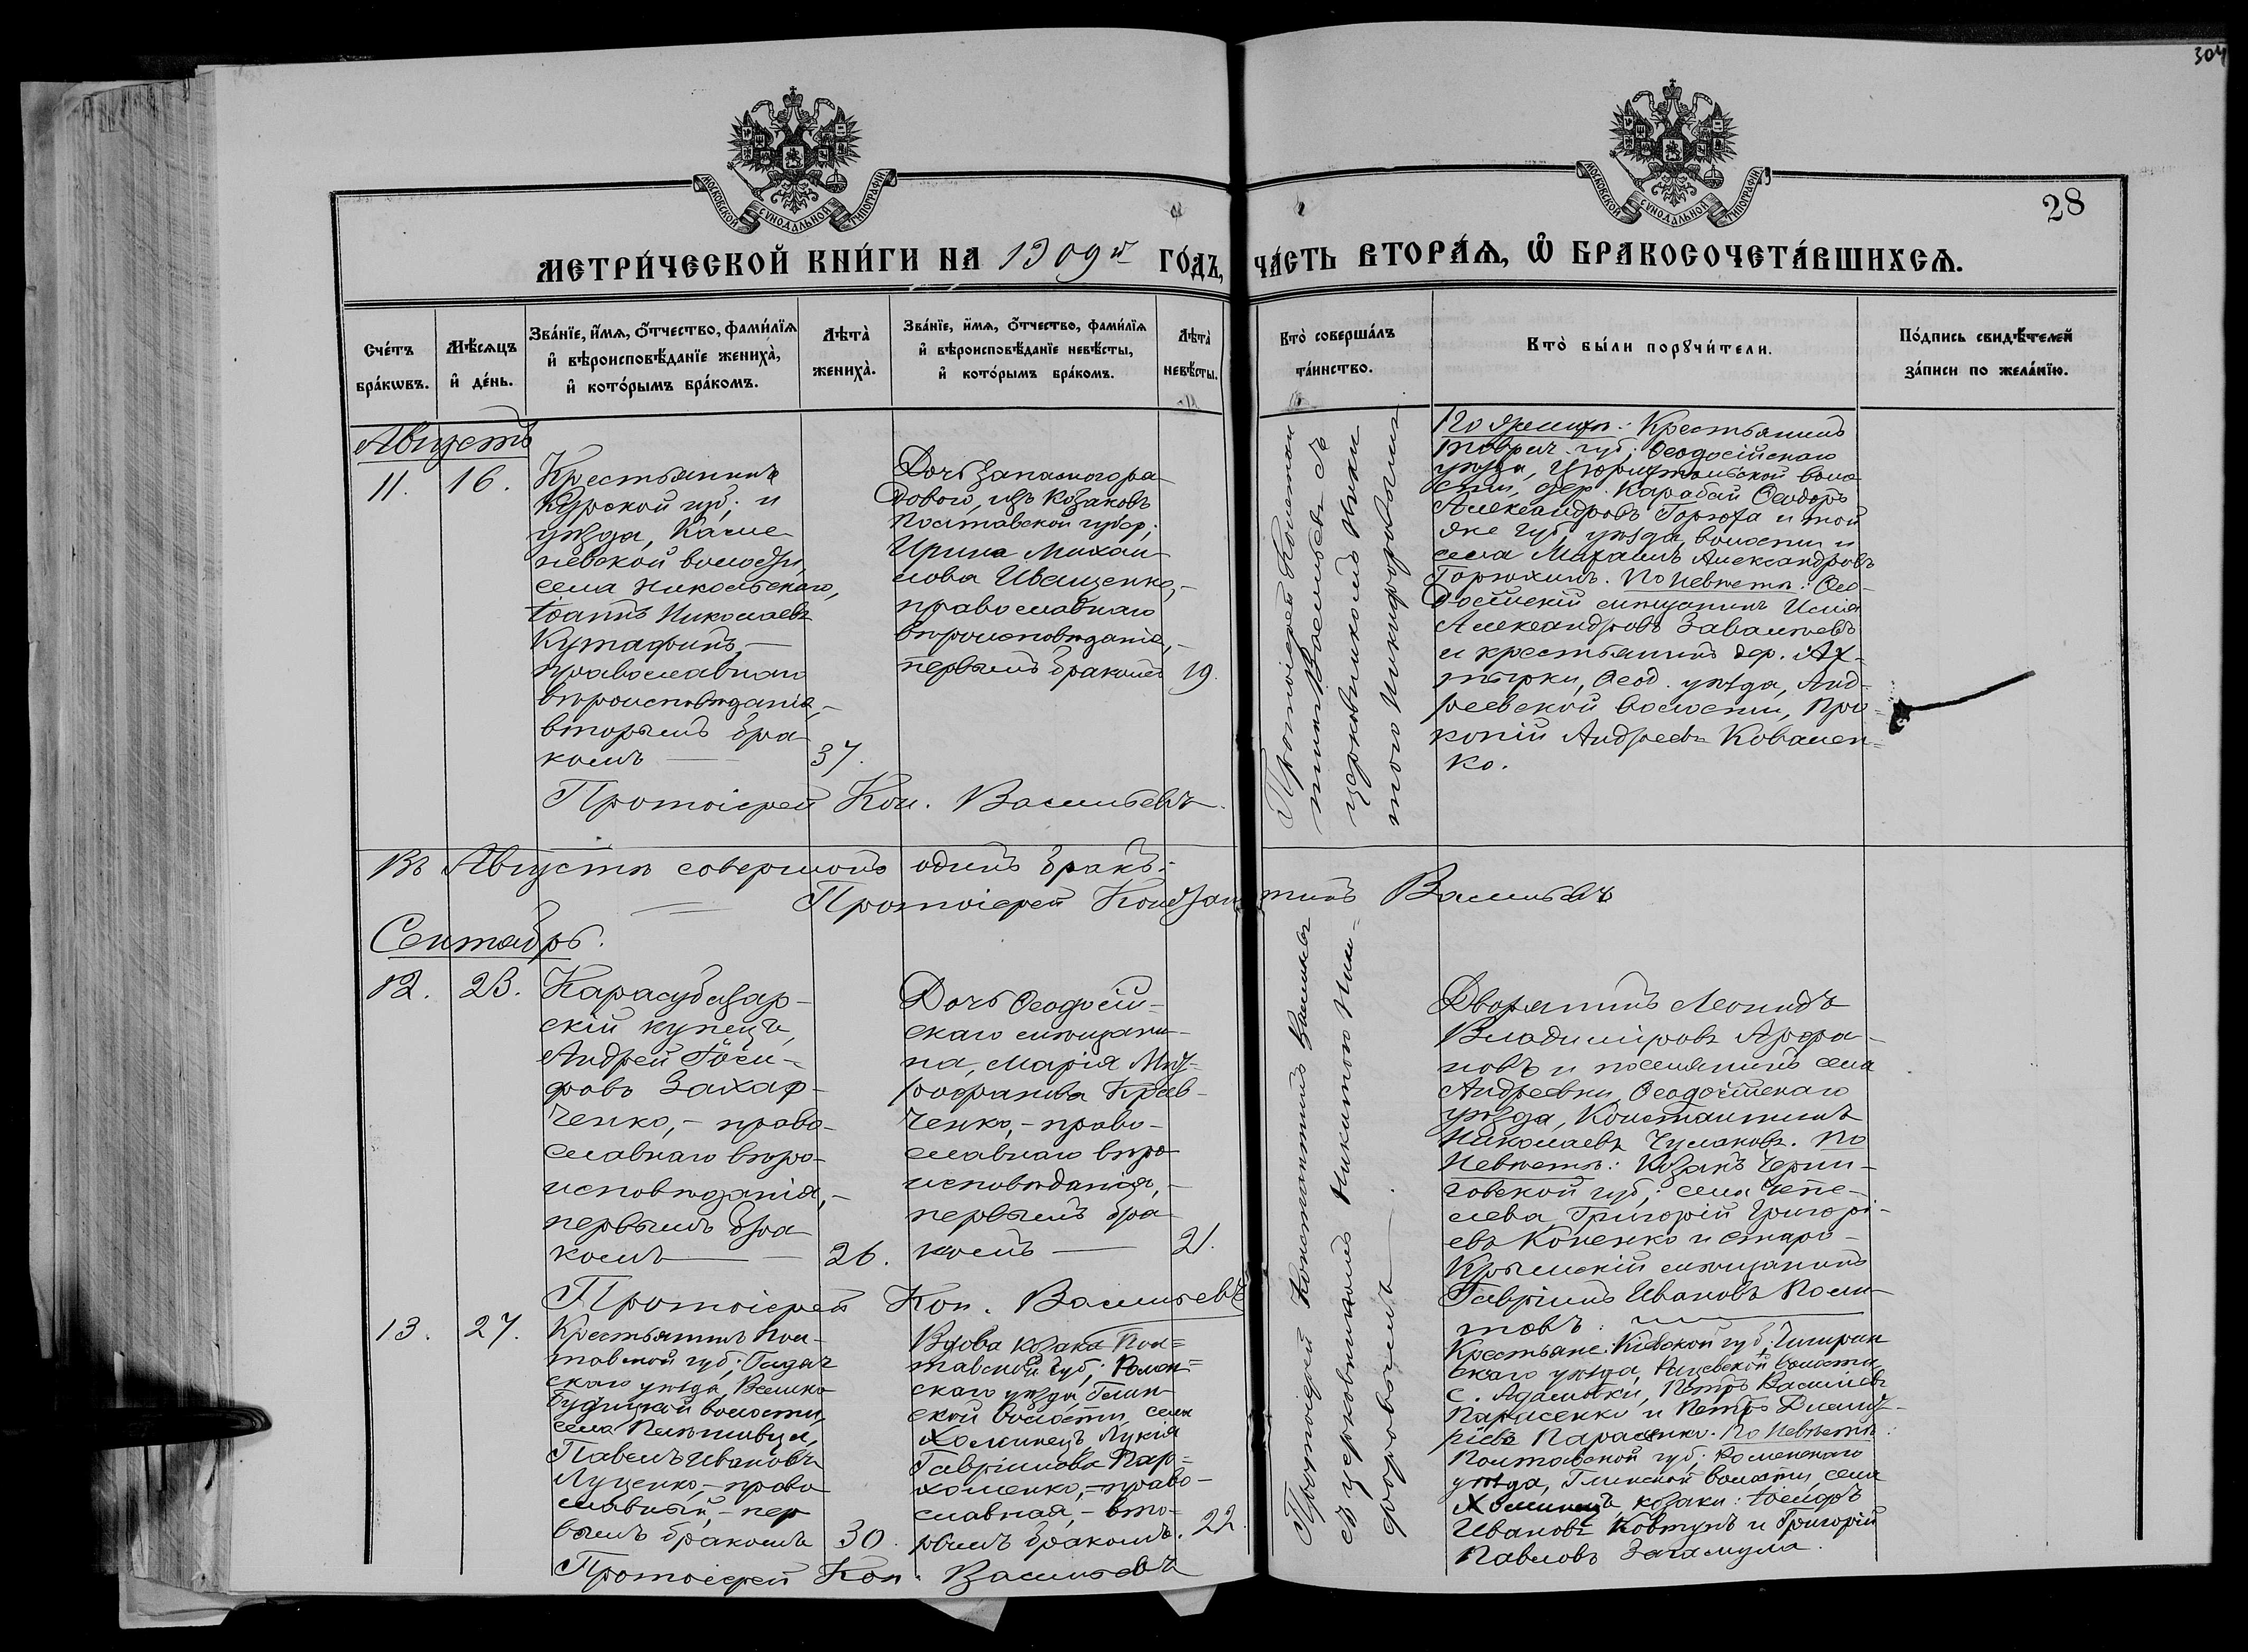 304
28
МОСКОВСКОЙ СѴНОДАЛЬНОЙ ТИПОГРАФІИ
МОСКОВСКОЙ СѴНОДАЛЬНОЙ ТИПОГРАФІИ
МЕТРИ́ЧЕСКОЙ КНИ́ГИ НА 1909й ГО́ДЪ, ЧА́СТЬ ВТОРА́Ѧ, Ѡ҆ БРАКОСОЧЕТА́ВШИХСѦ.
Сче́тъ
бра́кωвъ.
Мѣ́сѧцъ
и҆ де́нь.
Зва́нїе, и҆́мѧ, ѻ҆́тчество, фами́лїѧ
и҆ вѣроисповѣ́данїе жениха̀,
и҆ кото́рымъ бра́комъ.
Лѣта̀
жениха̀.
Зва́нїе, и҆́мѧ, ѻ҆́тчество, фами́лїѧ
и҆ вѣроисповѣ́данїе невѣ́сты,
и҆ кото́рымъ бра́комъ.
Лѣта̀
невѣ́сты.
Кто̀ соверша́лъ
та́инство.
Кто̀ бы́ли порꙋчи́тели.
По́дпись свидѣ́телей
за́писи по жела́нїю.
Августъ
11. 16.
Крестьянинъ
Курской губ. и
уѣзда, Каме-
невской волости,
села Никольскаго,
Іоаннъ Николаевъ
Кутафинъ, —
православнаго
вѣроисповѣданія, —
вторымъ бра-
комъ — 37.
Дочь запаснаго ря-
дового, изъ козаковъ
Полтавской губер.,
Ирина Михаи-
лова Иващенко, —
православнаго
вѣроисповѣданія, —
первымъ бракомъ 19.
Протоіерей Констан-
тинъ Васильевъ съ
церковникомъ Ники-
тою Никифоровымъ.
По женихѣ: Крестьянинъ
Таврич. губ., Ѳеодосійскаго
уѣзда, Цюрихтальской воло-
сти, дер. Карабай Ѳеодоръ
Александровъ Горюха и той
же губ., уѣзда, волости и
села Михаилъ Александровъ
Горюхинъ. По невѣстѣ: Ѳео-
досійскій мѣщанинъ Илія
Александровъ
и крестьянинъ дер. Ах-
тырки, Ѳеод. уѣзда, Анд-
реевской волости, Про-
копій Андреевъ Ковален-
ко.
Протоіерей Кон. Васильевъ.
Въ Августѣ совершонъ одинъ бракъ.
Протоіерей Константинъ Васильевъ
Сентябрь.
12. 23.
Карасубазар-
скій купецъ,
Андрей Іоси-
фовъ Захар-
ченко, — право-
славнаго вѣро-
исповѣданія, —
первымъ бра-
комъ — 26.
Дочь Ѳеодосій-
скаго мѣщани-
на, Марія Мит-
рофанова Крав-
ченко, — право-
славнаго вѣро-
исповѣданія, —
первымъ бра-
комъ — 21.
Протоіерей Константинъ Васильевъ
съ церковникомъ Никитою Ники-
форовымъ. —
Дворянинъ Леонидъ
Владиміровъ Арфа-
новъ и поселянинъ села
Андреевки, Ѳеодосійскаго
уѣзда, Константинъ
Николаевъ Чумаковъ. По
невѣстѣ: Козакъ Черни-
говской губ., села
Григорій Григорі-
евъ Копенко и старо-
Крымскій мѣщанинъ
Гавріилъ Ивановъ Поли-
товъ.
Протоіерей Кон. Васильевъ
13. 27.
Крестьянинъ Пол-
тавской губ., Гадяч-
скаго уѣзда, Велико-
Будищской волости,
села
Павелъ Ивановъ
Луценко, — право-
славный, — пер-
вымъ бракомъ 30.
Вдова козака Пол-
тавской губ., Ромен-
скаго уѣзда, Глин-
ской волости, села
Хоминецъ, Лукія
Гавріилова Пар-
хоменко, — право-
славная, — вто-
рымъ бракомъ. 22.
Крестьяне: Кіевской губ., Чигирин-
скаго уѣзда, волости,
с. Адамовки, Петръ Василіевъ
Парасенко и Петръ Димит-
ріевъ Парасенко. По невѣстѣ:
Полтавской губ., Роменскаго
уѣзда, Глинской волости, села
Хоминецъ козаки:
Ивановъ Ковтунъ и Григорій
Павловъ
Протоіерей Кон. Васильевъ